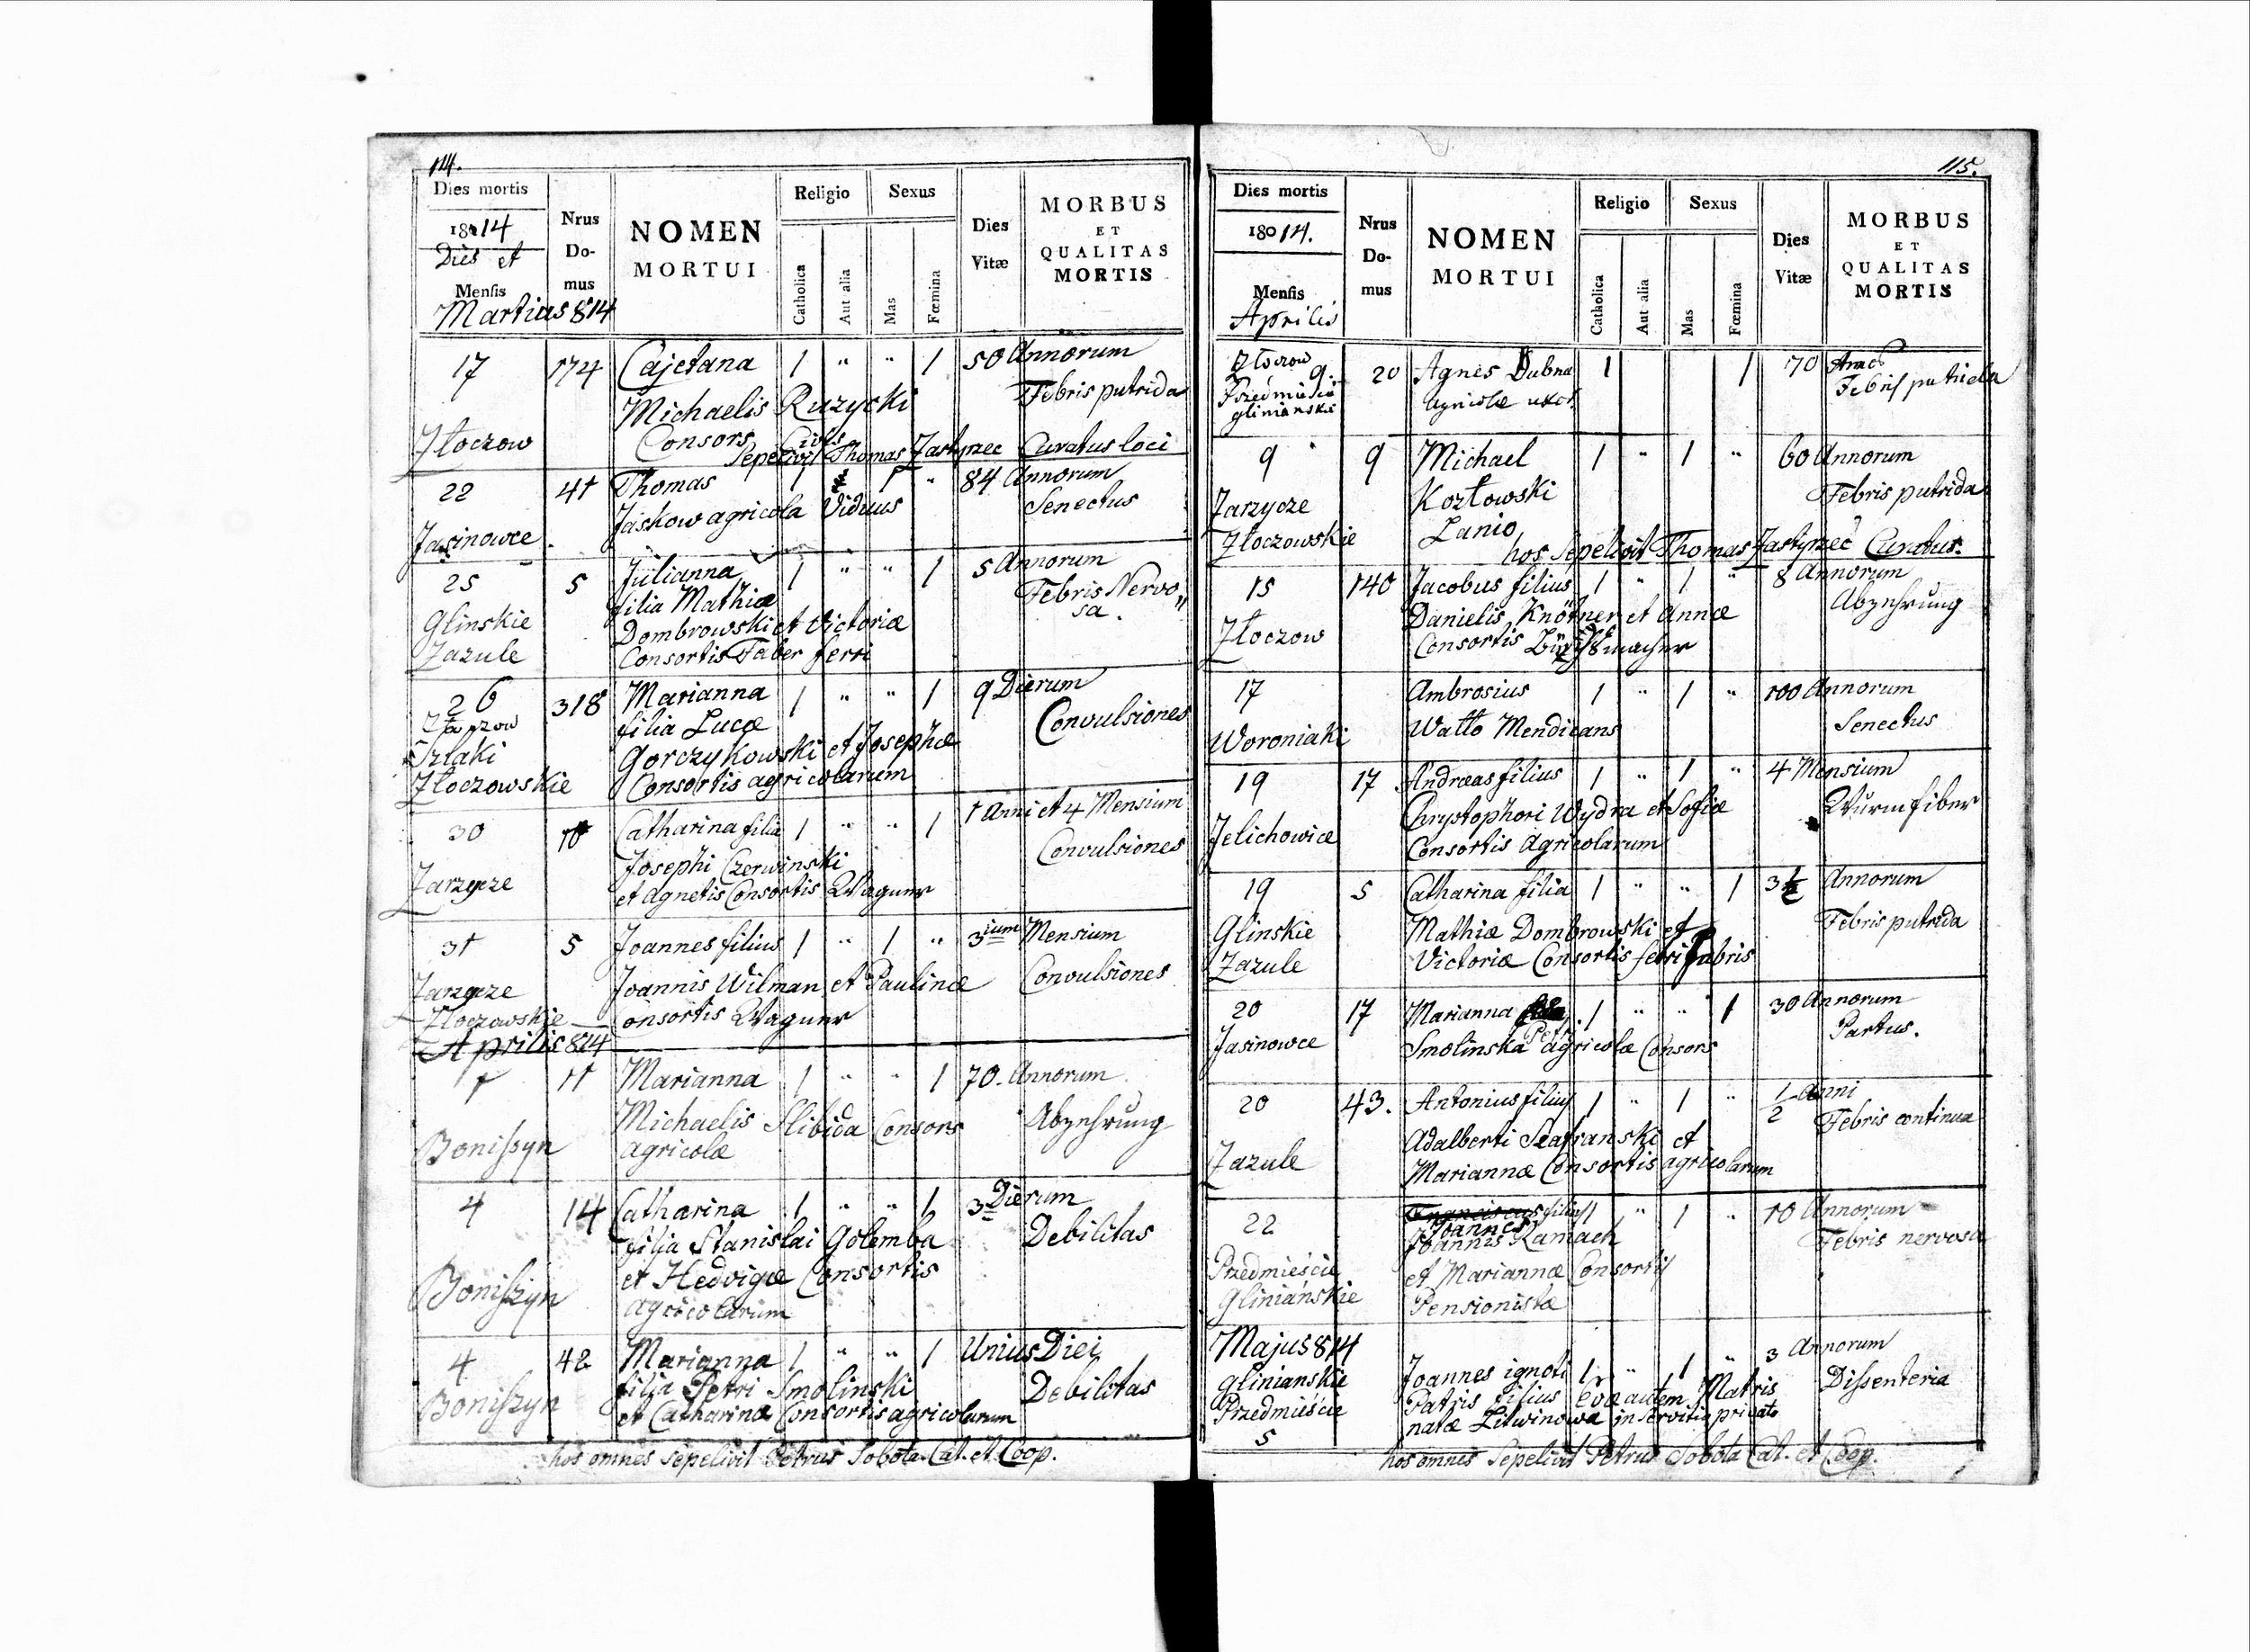 114.
Dies mortis
1814
Dies et
Mensis
Martius 814
Nrus
Do-
mus
NOMEN
MORTUI
Religio
Catholica
Aut alia
Sexus
Mas
Fœmina
Dies
Vitæ
MORBUS
ET
QUALITAS
MORTIS
17 174 Cajetana 1 " " 1 50 Annorum
Michaelis Ruzycki Febris putrida
Złoczow Consors Civis
Sepelivit Thomas Zastyrzec Curatus loci
22 41 Thomas 1 1 " 84 Annorum
Jaskow agricola Viduus Senectus
Jasinowce
25 5 Julianna 1 " " 1 5 Annorum
filia Mathiæ Febris Nervo„
Glinskie Dombrowski et Victoriæ sa.
Zazule Consortis Faber ferri
26 318 Marianna 1 " " 1 9 Dierum
filia Lucæ Convulsiones
Szlaki Gorczykowski et Josephæ
Złoczowskie Consortis agricolarum
30 10 Catharina filia 1 " " 1 1 Anni et 4 Mensium
Josephi Czerwinski Convulsiones
Zarzycze et Agnetis Consortis Wagner
31 5 Joannes filius 1 " 1 " 3ium Mensium
Zarzycze Joannis Wilman et Paulinæ Convulsiones
Złoczowskie Consortis Wagner
Aprilis 814
1 11 Marianna 1 " " 1 70. Annorum
Michaelis Slibida Consors Abzehrung
Boniszyn Agricolæ
4 14 Catharina 1 " " 1 3 Dierum
filia Stanislai Golemba Debilitas
et Hedvigæ Consortis
Boniszyn agricolarum
4 42 Marianna 1 " " 1 Unius Diei
filja Petri Smolinski Debilitas
Boniszyn et Catharinæ Consortis agricolarum
hos omnes Sepelivit Petrus Sobota Cat. et Coop.
115.
Dies mortis
18014.
Mensis
Aprilis
Nrus
Do-
mus
NOMEN
MORTUI
Religio
Catholica
Aut alia
Sexus
Mas
Fœmina
Dies
Vitæ
MORBUS
ET
QUALITAS
MORTIS
Złoczow 9. 20 Agnes Dubna 1 1 70
Przedmieście Agricolæ uxor Febris putrida
glinianskie
9 9 Michael 1 " 1 " 60 Annorum
Zarzycze Kozłowski Febris putrida
Złoczowskie Lanio
hos Sepelivit Thomas Zastyrzec Curatus.
15 140 Jacobus filius 1 " 1 " 8 Annorum
Danielis Knötner et Annæ Abzehrung
Złoczow Consortis
17 Ambrosius 1 " 1 " 100 Annorum
Woroniaki Watto Mendicans Senectus
19 17 Andræas filius 1 " 1 " 4 Mensium
Chrystophori Wydra et Sofiæ Wurmfiber
Jelichowice Consortis Agricolarum
19 5 Catharina filia 1 " " 1 3½ Annorum
Glinskie Mathiæ Dombrowski et Febris putrida
Zazule Victoriæ Consortis ferri fabris
20 17 Marianna 1 " " 1 30 Annorum
Petri Partus.
Jasinowce Smolinska agricolæ Consors
20 43. Antonius filius 1 " 1 " 1/2 Anni
Adalberti Szafranski et Febris continua
Zazule Mariannæ Consortis agricolarum
22 Franciscus filius 1 " 1 " 10 Annorum
Joannes Febris nervosa
Joannis Ramach
Przedmieście et Mariannæ Consortis
Gliniańskie Pensionistæ
Majus 814
glinianskie Joannes ignoti 1 " 1 " 3 Annorum
Przedmieście Patris filius Evæ autem Matris Dissenteria
5 natæ Litwinowæ in servitio privato
hos omnes Sepelivit Petrus Sobota Cat. et Coop.